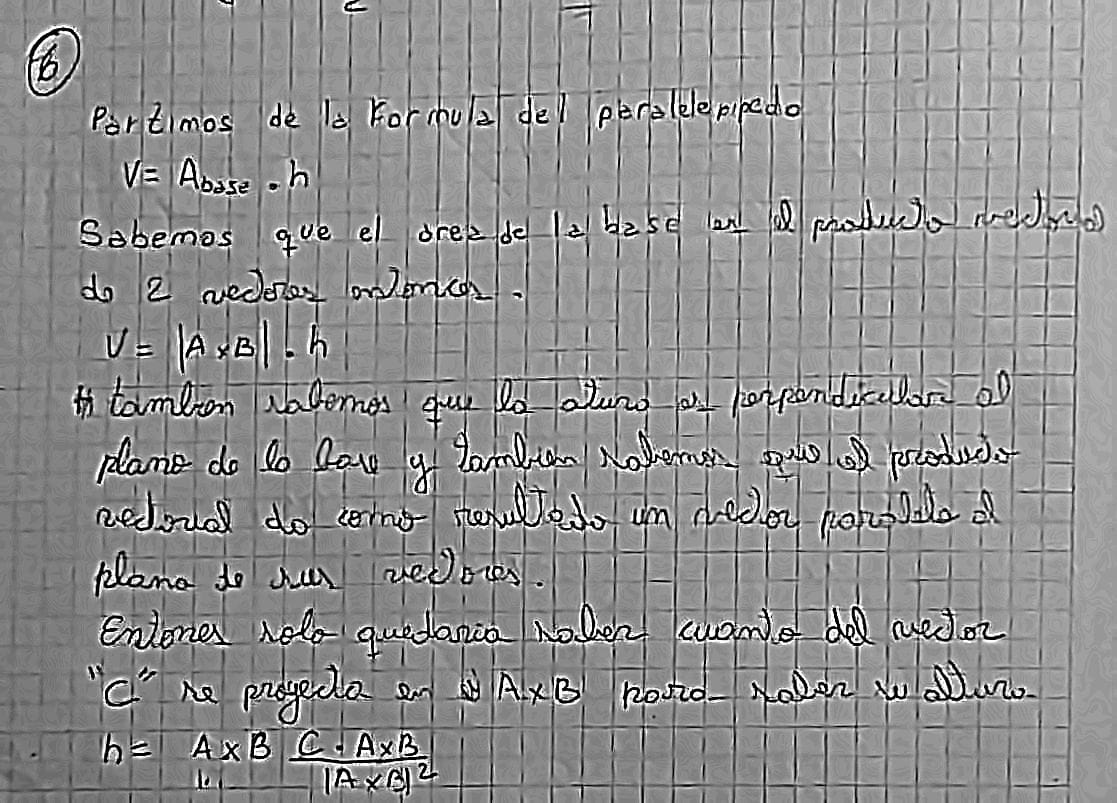 6
Partimos de la Formula del paralelepipedo
V= Abase . h
Sabemos que el area de la base es el producto vectorial
de 2 vectores entonces.
V = |A x B| . h
tambien sabemos que la altura es perpendicular al
plano de la base y tambien sabemos que el producto
vectorial da como resultado un vector paralelo al
plano de sus vectores.
Entones solo quedaria saber cuanto del vector
"C" se proyecta en A x B para saber su altura
h= A x B C . A x B / |A x B|²